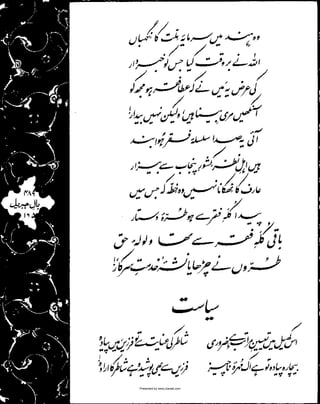 وہ ہند میں سرمایۂ ملّت کا نگہباں
اللہ نے بر وقت کیا جس کو خبردار
کی عرض یہ میں نے کہ عطا فقر ہو مجھ کو
آنکھیں مری بینا ہیں، ولیکن نہیں بیدار!
آئی یہ صدا سلسلۂ فقر ہوا بند
ہیں اہلِ نظر کشورِ پنجاب سے بیزار
عارف کا ٹھکانا نہیں وہ خطّہ کہ جس میں
پیدا کلہِ فقر سے ہو طُرّۂ دستار
باقی کلہِ فقر سے تھا ولولۂ حق
طُرّوں نے چڑھایا نشۂ 'خدمتِ سرکار'!
سیاست
اس کھیل میں تعیینِ مراتب ہے ضروری
شاطر کی عنایت سے تو فرزیں، میں پیادہ
بیچارہ پیادہ تو ہے اک مُہرۂ ناچیز
فرزیں سے بھی پوشیدہ ہے شاطر کا ارادہ!
بالِ جبریل
Presented by www.ziaraat.com